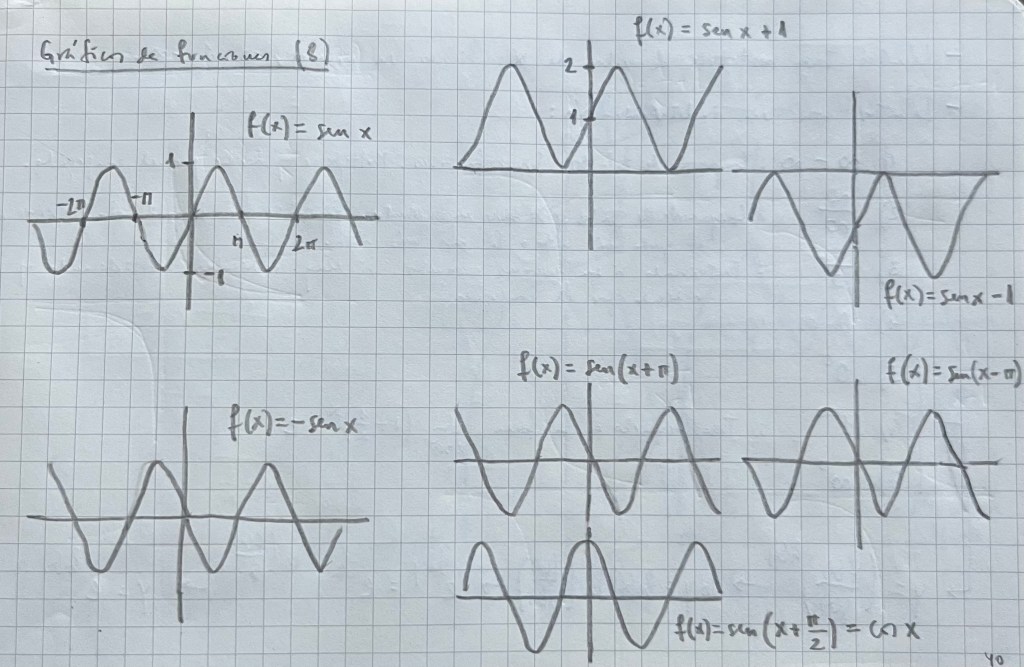 Gráficas de funciones (8)
f(x) = sen x
1
-2π
-π
π
2π
-1
f(x) = sen x + 1
2
1
f(x) = sen x - 1
f(x) = -sen x
f(x) = sen (x + π)
f(x) = sen(x - π)
f(x) = sen (x + π/2) = cos x
40